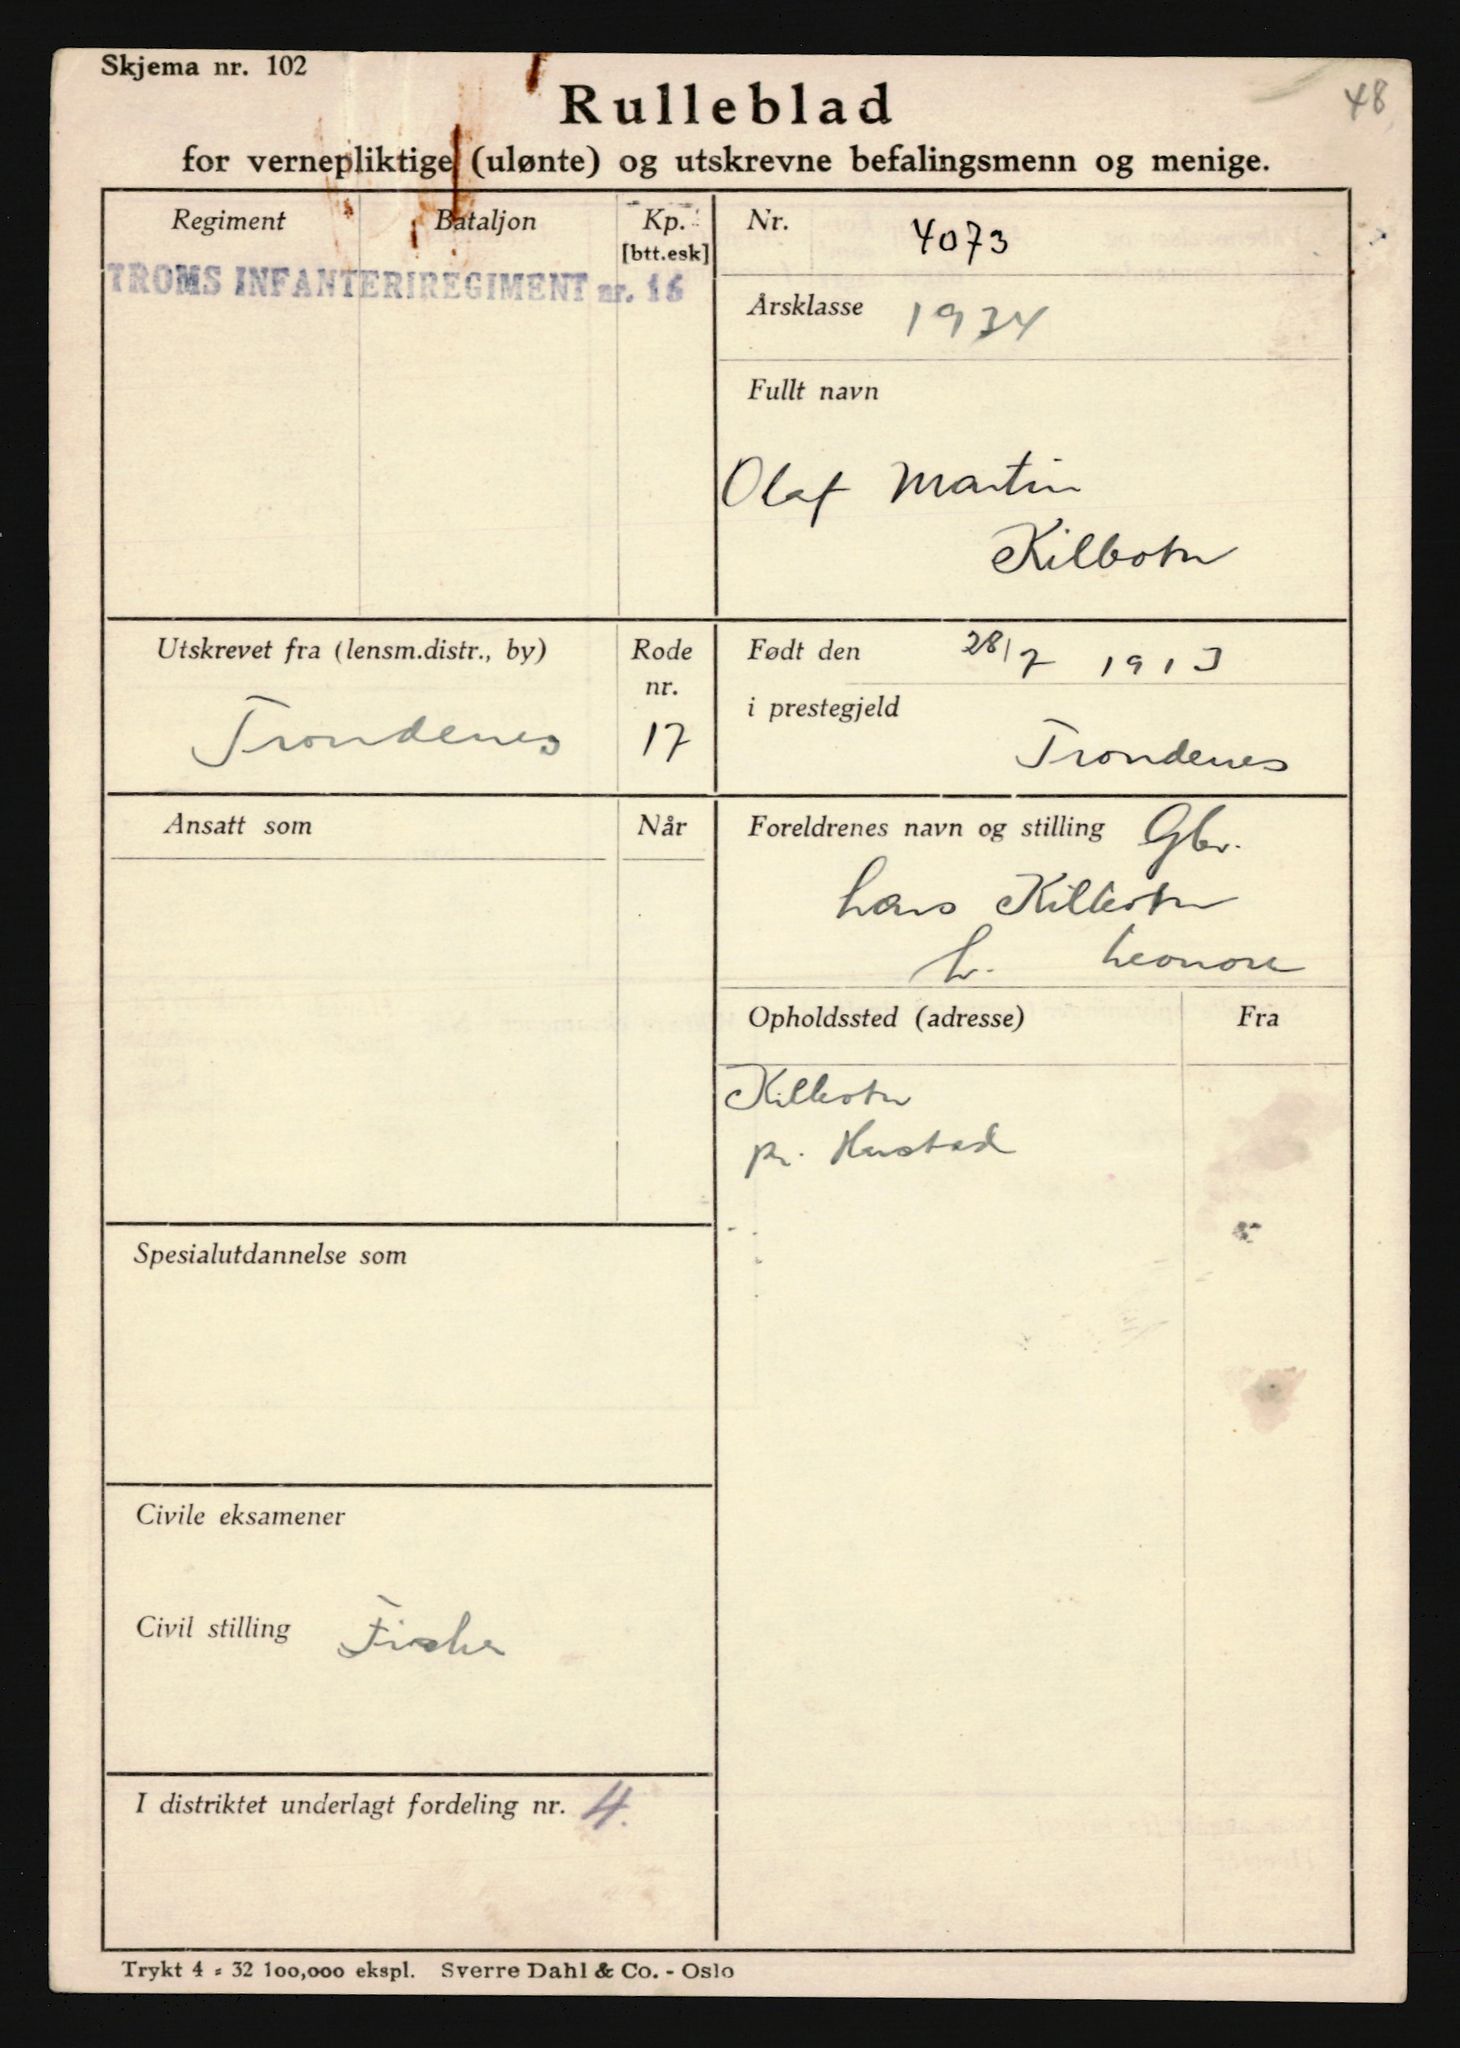 Skjema nr. 102
48
Rulleblad
for vernepliktige (ulønte) og utskrevne befalingsmenn og menige.
Regiment
Bataljon
Kp.
[btt.esk]
TROMS INFANTERIREGIMENT nr. 16
Nr. 4073
Årsklasse 1934
Fullt navn
Olaf Martin
Kilbotn
Utskrevet fra (lensm.distr., by)
Trondenes
Rode
nr.
17
Født den 28/7 1913
i prestegjeld
Trondenes
Ansatt som
Når
Foreldrenes navn og stilling Gbr.
Lars Kilbotn
h. Leonore
Opholdssted (adresse)
Fra
Kilbotn
pr. Harstad
Spesialutdannelse som
Civile eksamener
Civil stilling Fisker
I distriktet underlagt fordeling nr. 4.
Trykt 4 - 32 100,000 ekspl. Sverre Dahl & Co. - Oslo